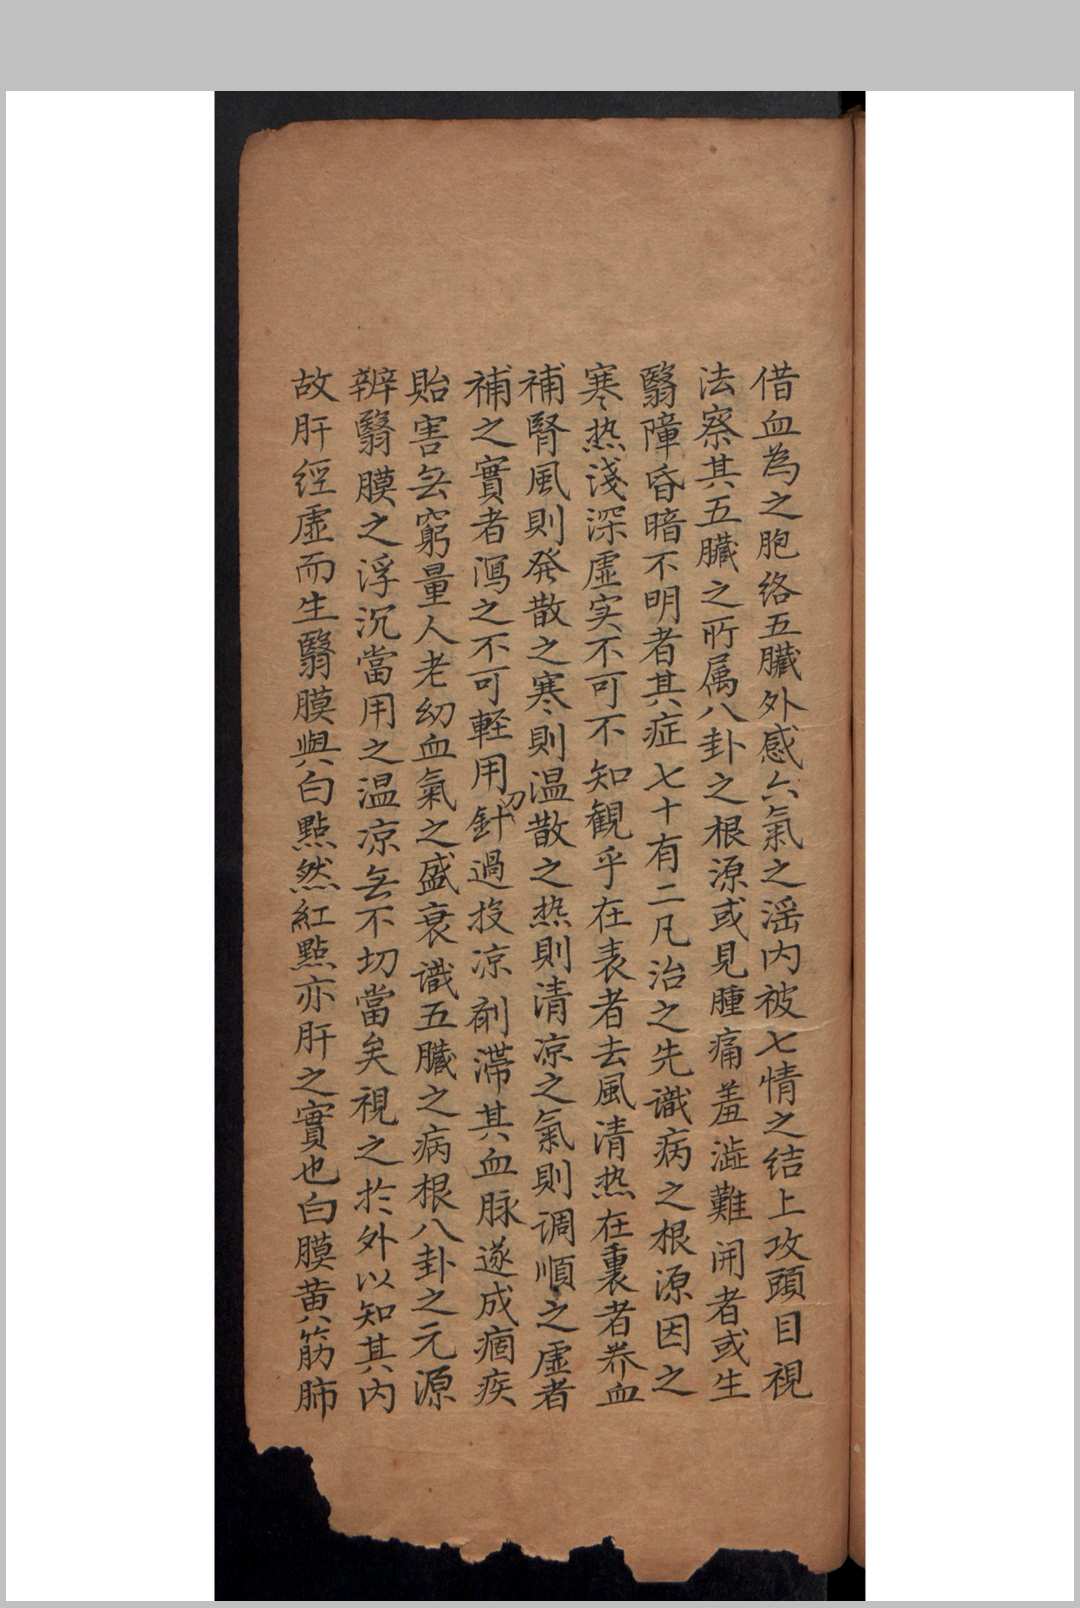 借血為之胞络五臟外感六氣之滛内被七情之结上攻頭目視
法察其五臟之所属八卦之根源或見腫痛羞澁難開者或生
翳障昏暗不明者其症七十有二凡治之先識病之根源因之
寒热淺深虚实不可不知観乎在表者去風清热在裏者养血
補腎風則発散之寒則温散之热則清凉之氣則调順之虚者
補之實者瀉之不可軽用針刀過投凉剤滯其血脉遂成痼疾
貽害无窮量人老幼血氣之盛衰識五臟之病根八卦之元源
辨翳膜之浮沉當用之温凉无不切當矣視之於外以知其内
故肝經虚而生翳膜與白點然紅點亦肝之實也白膜黄筋肺